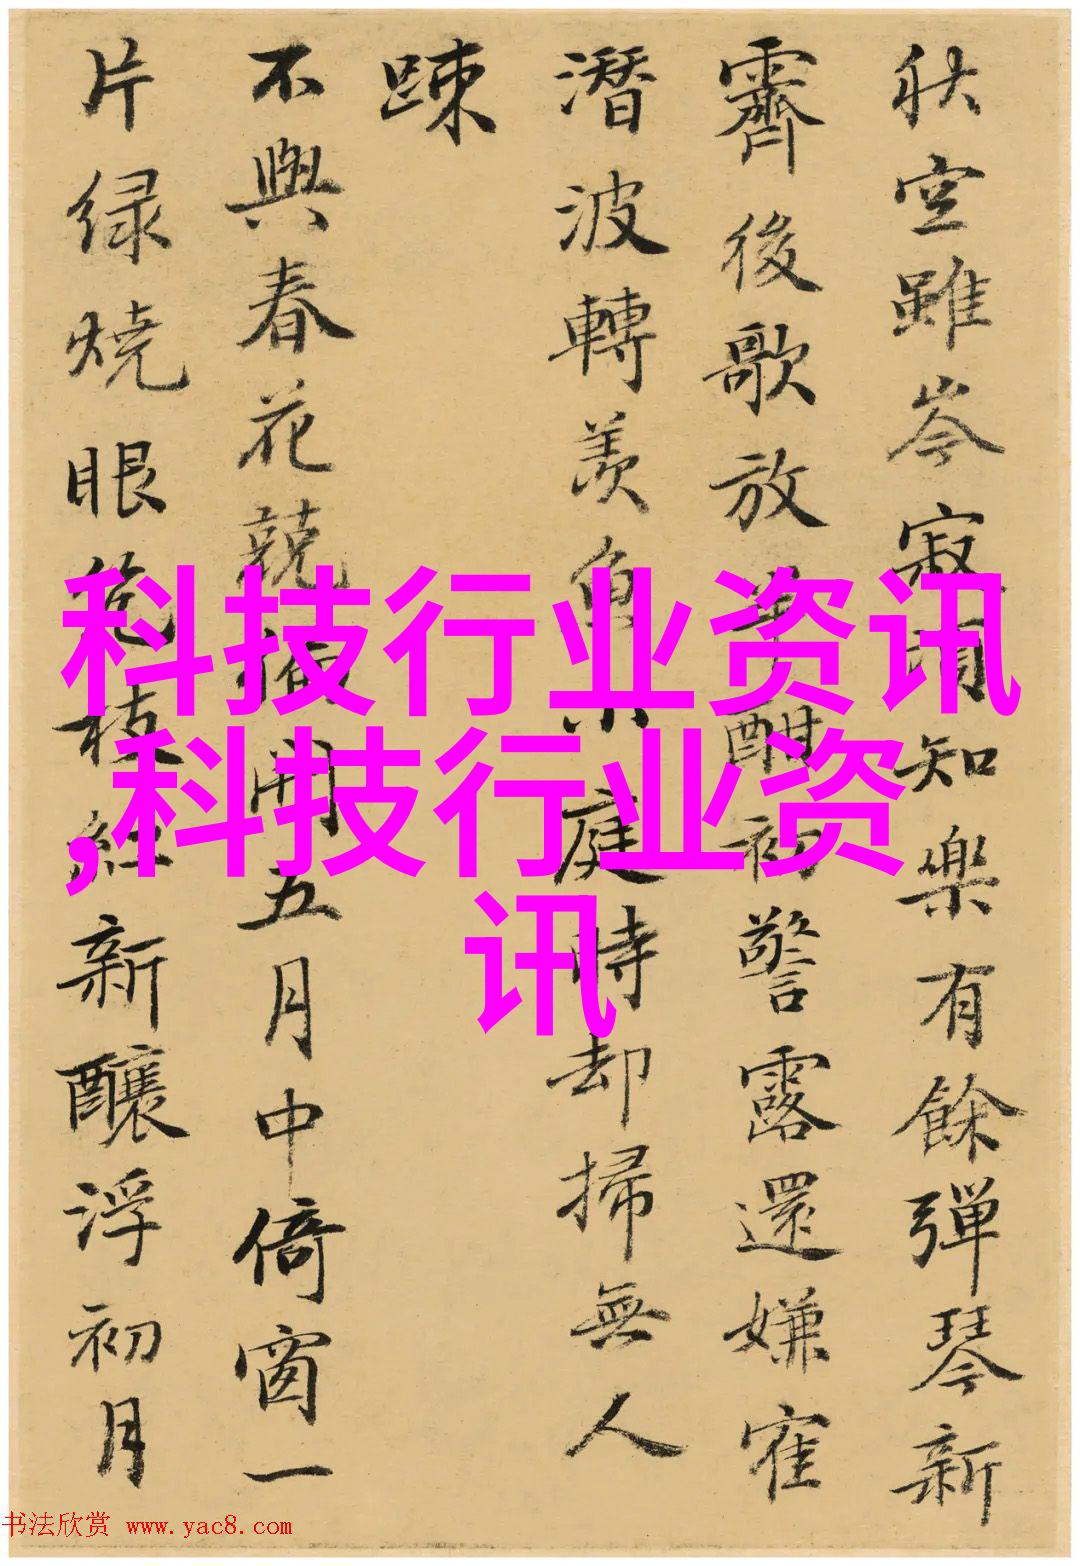 秋空雖岑寂知樂有餘彈琴新
霽後歌放酣初警露還嫌寉
潛波轉羨魚小庭時却掃無人
踈
不與春花競開五月中倚窗一
片緑燒眼枝紅新釀浮初月
科技行业资讯
,科技行业资
讯
书法欣赏 www.yac8.com